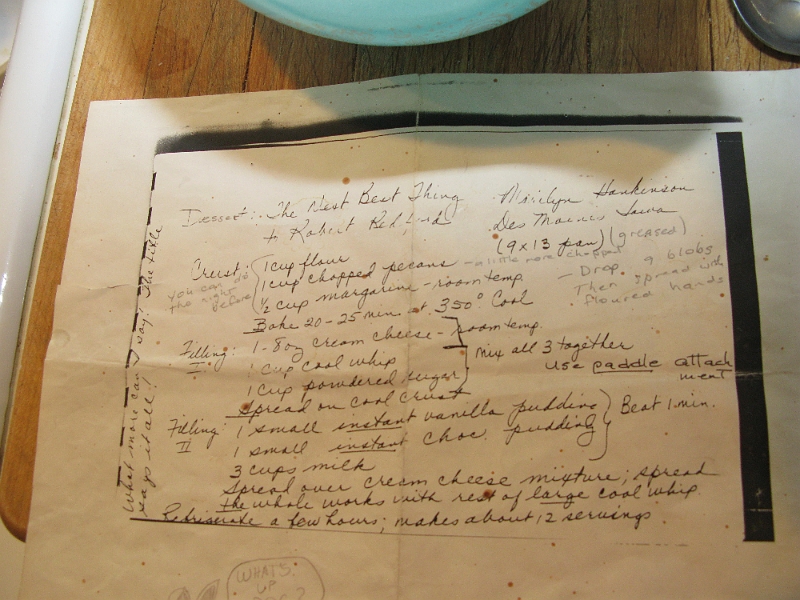 Dessert: The Next Best Thing
to Robert Redford
Marilyn Hankinson
Des Moines Iowa
(9x13 pan) (greased)
Crust: 1 cup flour
1 cup chopped pecans - a little more chopped
1/2 cup margarine - room temp.
you can do
the night
before
- Drop blobs
Then spread with
floured hands
Bake 20-25 min at 350° Cool
Filling: I
1-8oz cream cheese - room temp.
1 cup cool whip
1 cup powdered sugar
mix all 3 together
use paddle attach
ment
Spread on cool crust
Filling: II
1 small instant vanilla pudding
1 small instant choc. pudding
Beat 1 min.
3 cups milk
Spread over cream cheese mixture; spread
the whole works with rest of large cool whip.
Refrigerate a few hours; makes about 12 servings.
What more can I say? The title
says it all!
WHAT'S
UP
DOC?